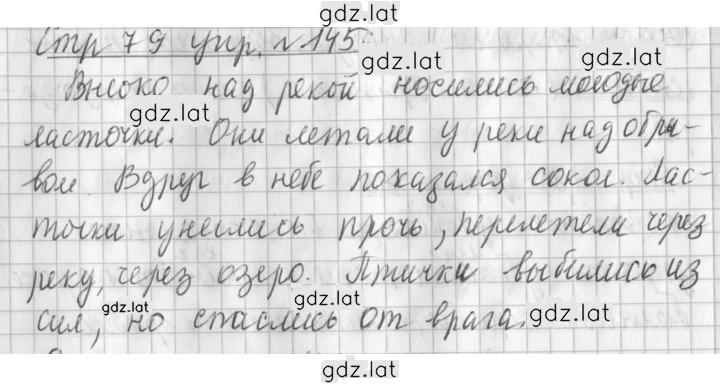 gdz.lat
Стр 79 упр. №145
gdz.lat
Высоко над рекой носились молодые
gdz.lat
ласточки. Они летали у реки над обры-
вом. Вдруг в небе показался сокол. Лас-
точки унеслись прочь, перелетели через
реку, через озеро. Птички выбились из
gdz.lat gdz.lat
сил, но спаслись от врага. gdz.lat
gdz.lat